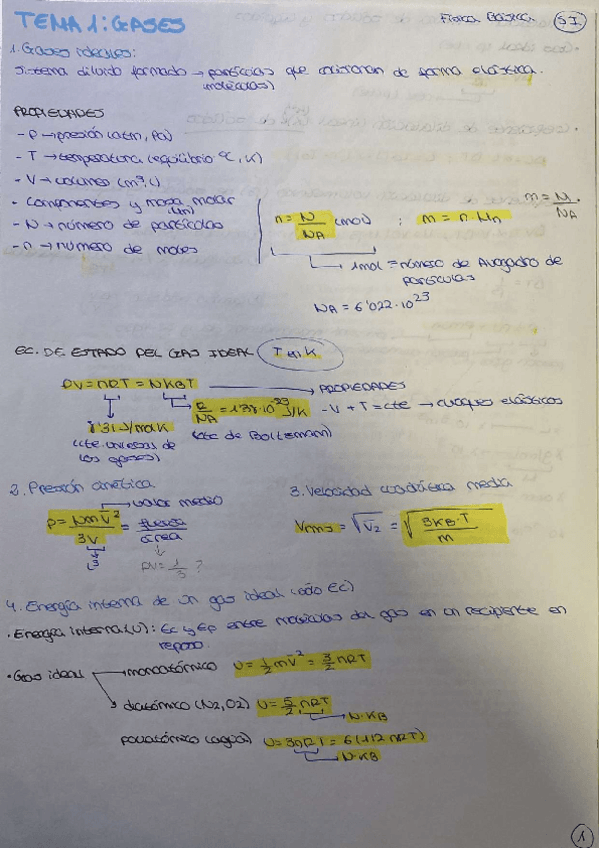 TEMA 1: GASES
Física Básica
SI
1. Gases ideales:
Sistema diluido formado → partículas que colisionan de forma elástica.
(moléculas)
PROPIEDADES
- P → presión (atm, Pa)
- T → temperatura (equilibrio ºC, K)
- V → volumen (m³, L)
- Componentes y masa molar
(Mn)
- N → número de partículas
- n → número de moles
n = N/NA (mol) ; m = n · Mn
m = M/NA
1 mol = número de Avogadro de
partículas
NA = 6'022 · 10^23
EC. DE ESTADO DEL GAS IDEAL (T en K)
PV = nRT = NKBT
8'31 J/molK
(cte. universal de
los gases)
R/NA = 1'38 · 10^-23 J/K
(cte de Boltzmann)
PROPIEDADES
- V + T = cte → choques elásticos
2. Presión cinética
valor medio
P = NmV̄²/3V = fuerza/área
L³
PV = 1/3 ?
3. Velocidad cuadrática media
Vrms = √V̄2 = √(3KB·T/m)
4. Energía interna de un gas ideal (sólo Ec)
· Energía interna (U): Ec y Ep entre moléculas del gas en un recipiente en
reposo.
· Gas ideal → monoatómico U = 1/2 mv̄² = 3/2 nRT
diatómico (N2, O2) U = 5/2 nRT
N·KB
poliatómico (agua) U = 3nRT = 6(1/2 nRT)
N·KB
1